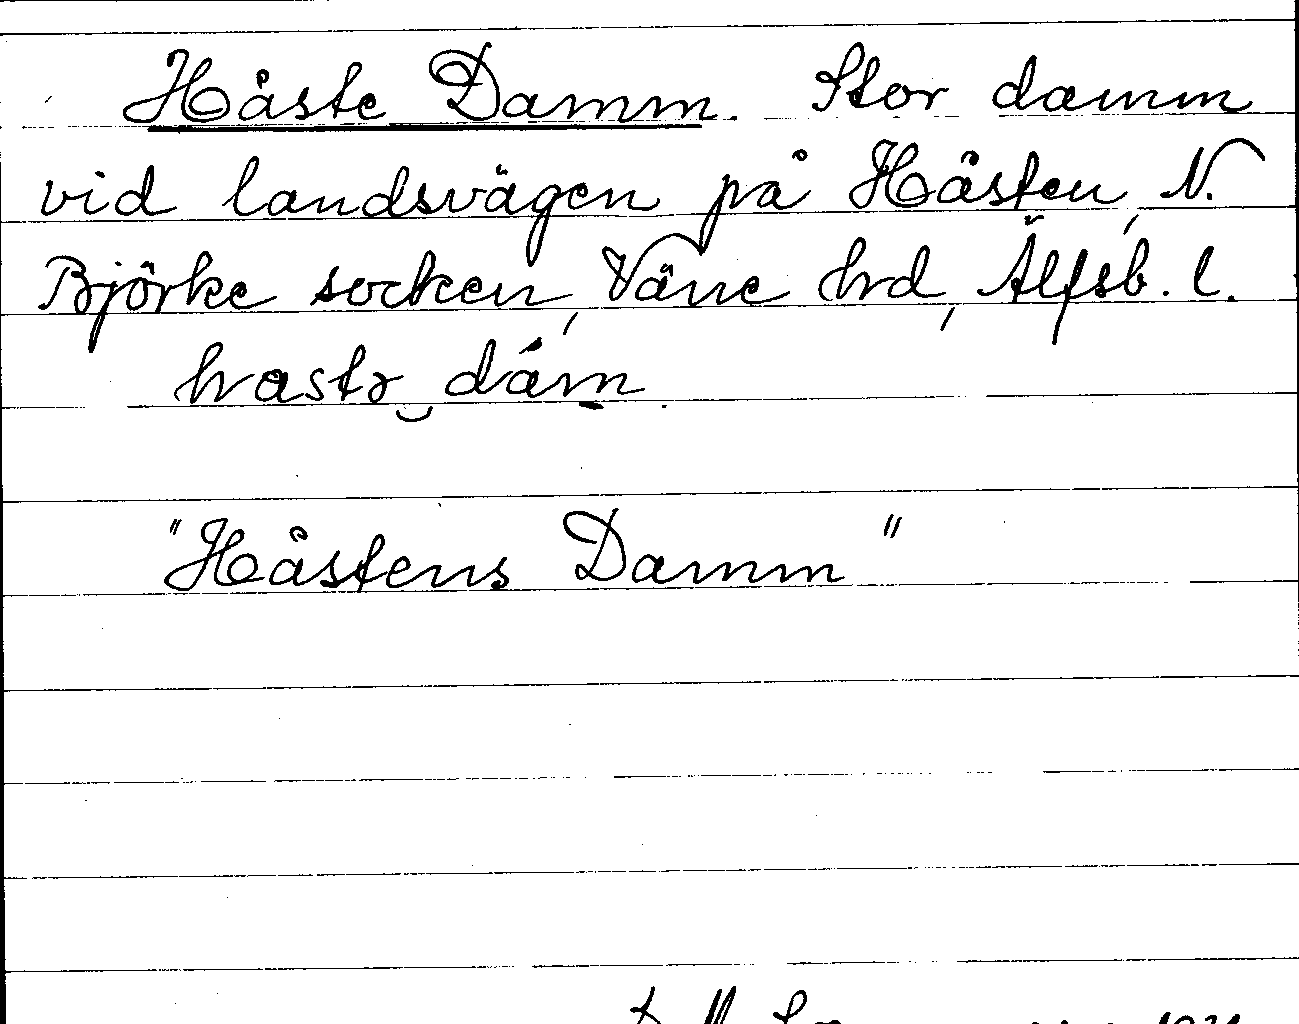 Håste Damm. Stor damm
vid landsvägen på Håsten, N.
Björke socken, Väne hrd, Älfsb. l.
"Håstens Damm"